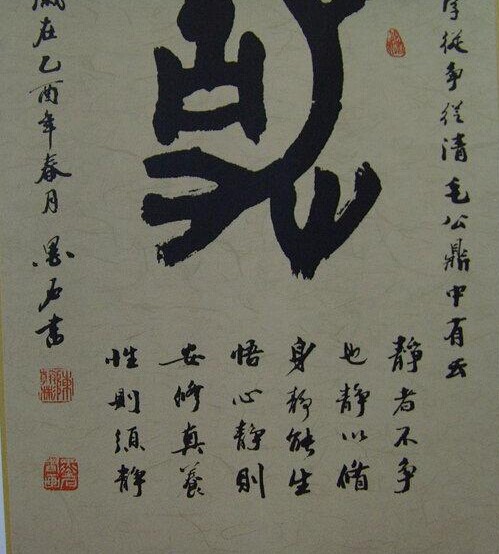 從争從清毛公鼎中有云
静者不争
也静以脩
身静能生
悟心静則
安修真養
性則須静
歲在乙酉年春月墨石書